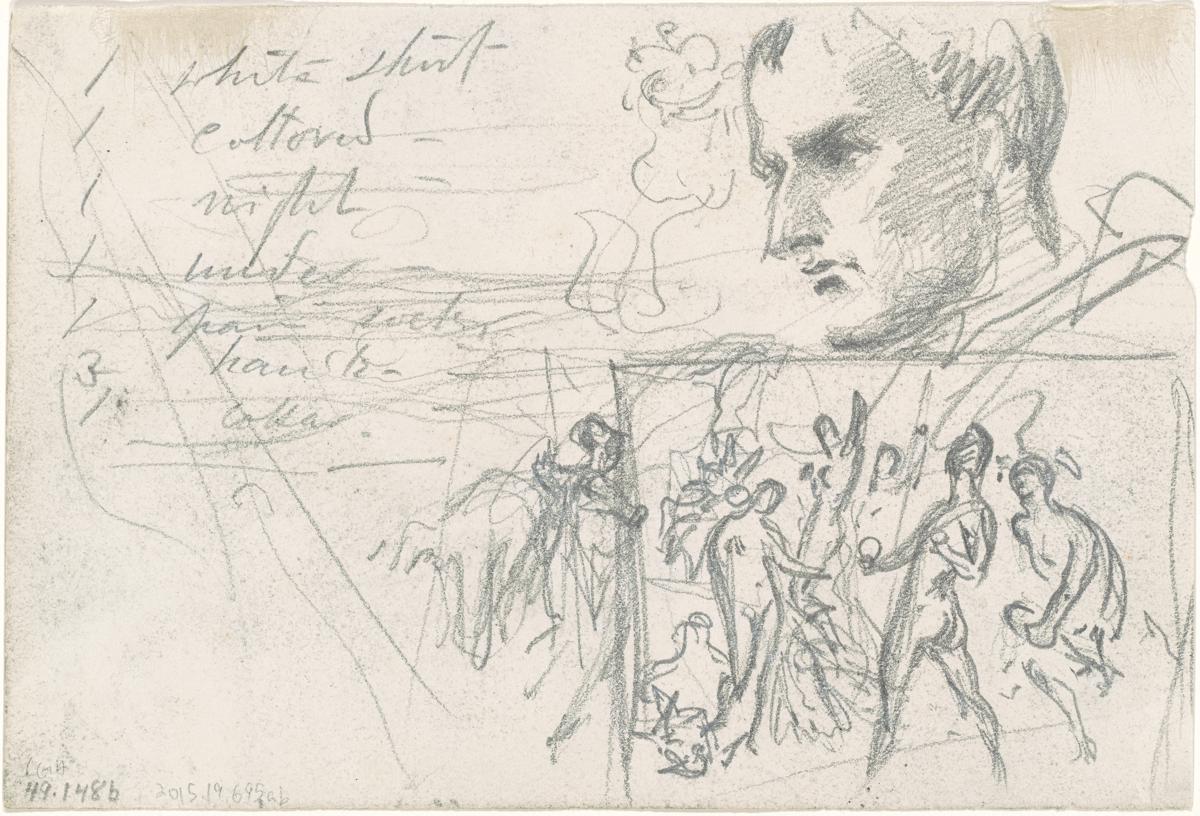 1 white shirt
1 cottored -
1 night -
1 under -
1 pair socks
3 hankr-
1 collar.
49.148b 2015.19.695ab